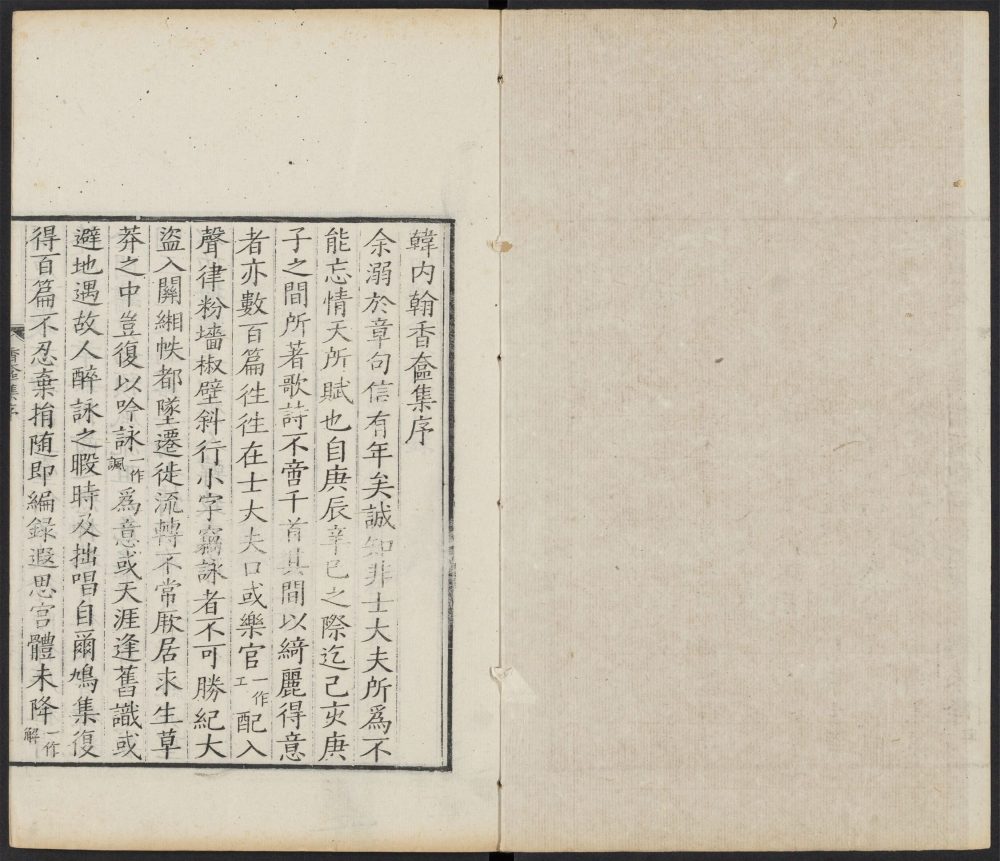 韓内翰香奩集序
余溺於章句信有年矣誠知非士大夫所爲不
能忘情天所賦也自庚辰辛巳之際迄己亥庚
子之間所著歌詩不啻千首其間以綺麗得意
者亦數百篇徃徃在士大夫口或樂官一作工配入
聲律粉墻椒壁斜行小字竊詠者不可勝紀大
盜入關緗帙都墜遷徙流轉不常厥居求生草
莽之中豈復以吟詠一作諷爲意或天涯逢舊識或
避地遇故人醉詠之暇時及拙唱自爾鳩集復
得百篇不忍棄捐随即編録遐思宫體未降一作解
香奩集序